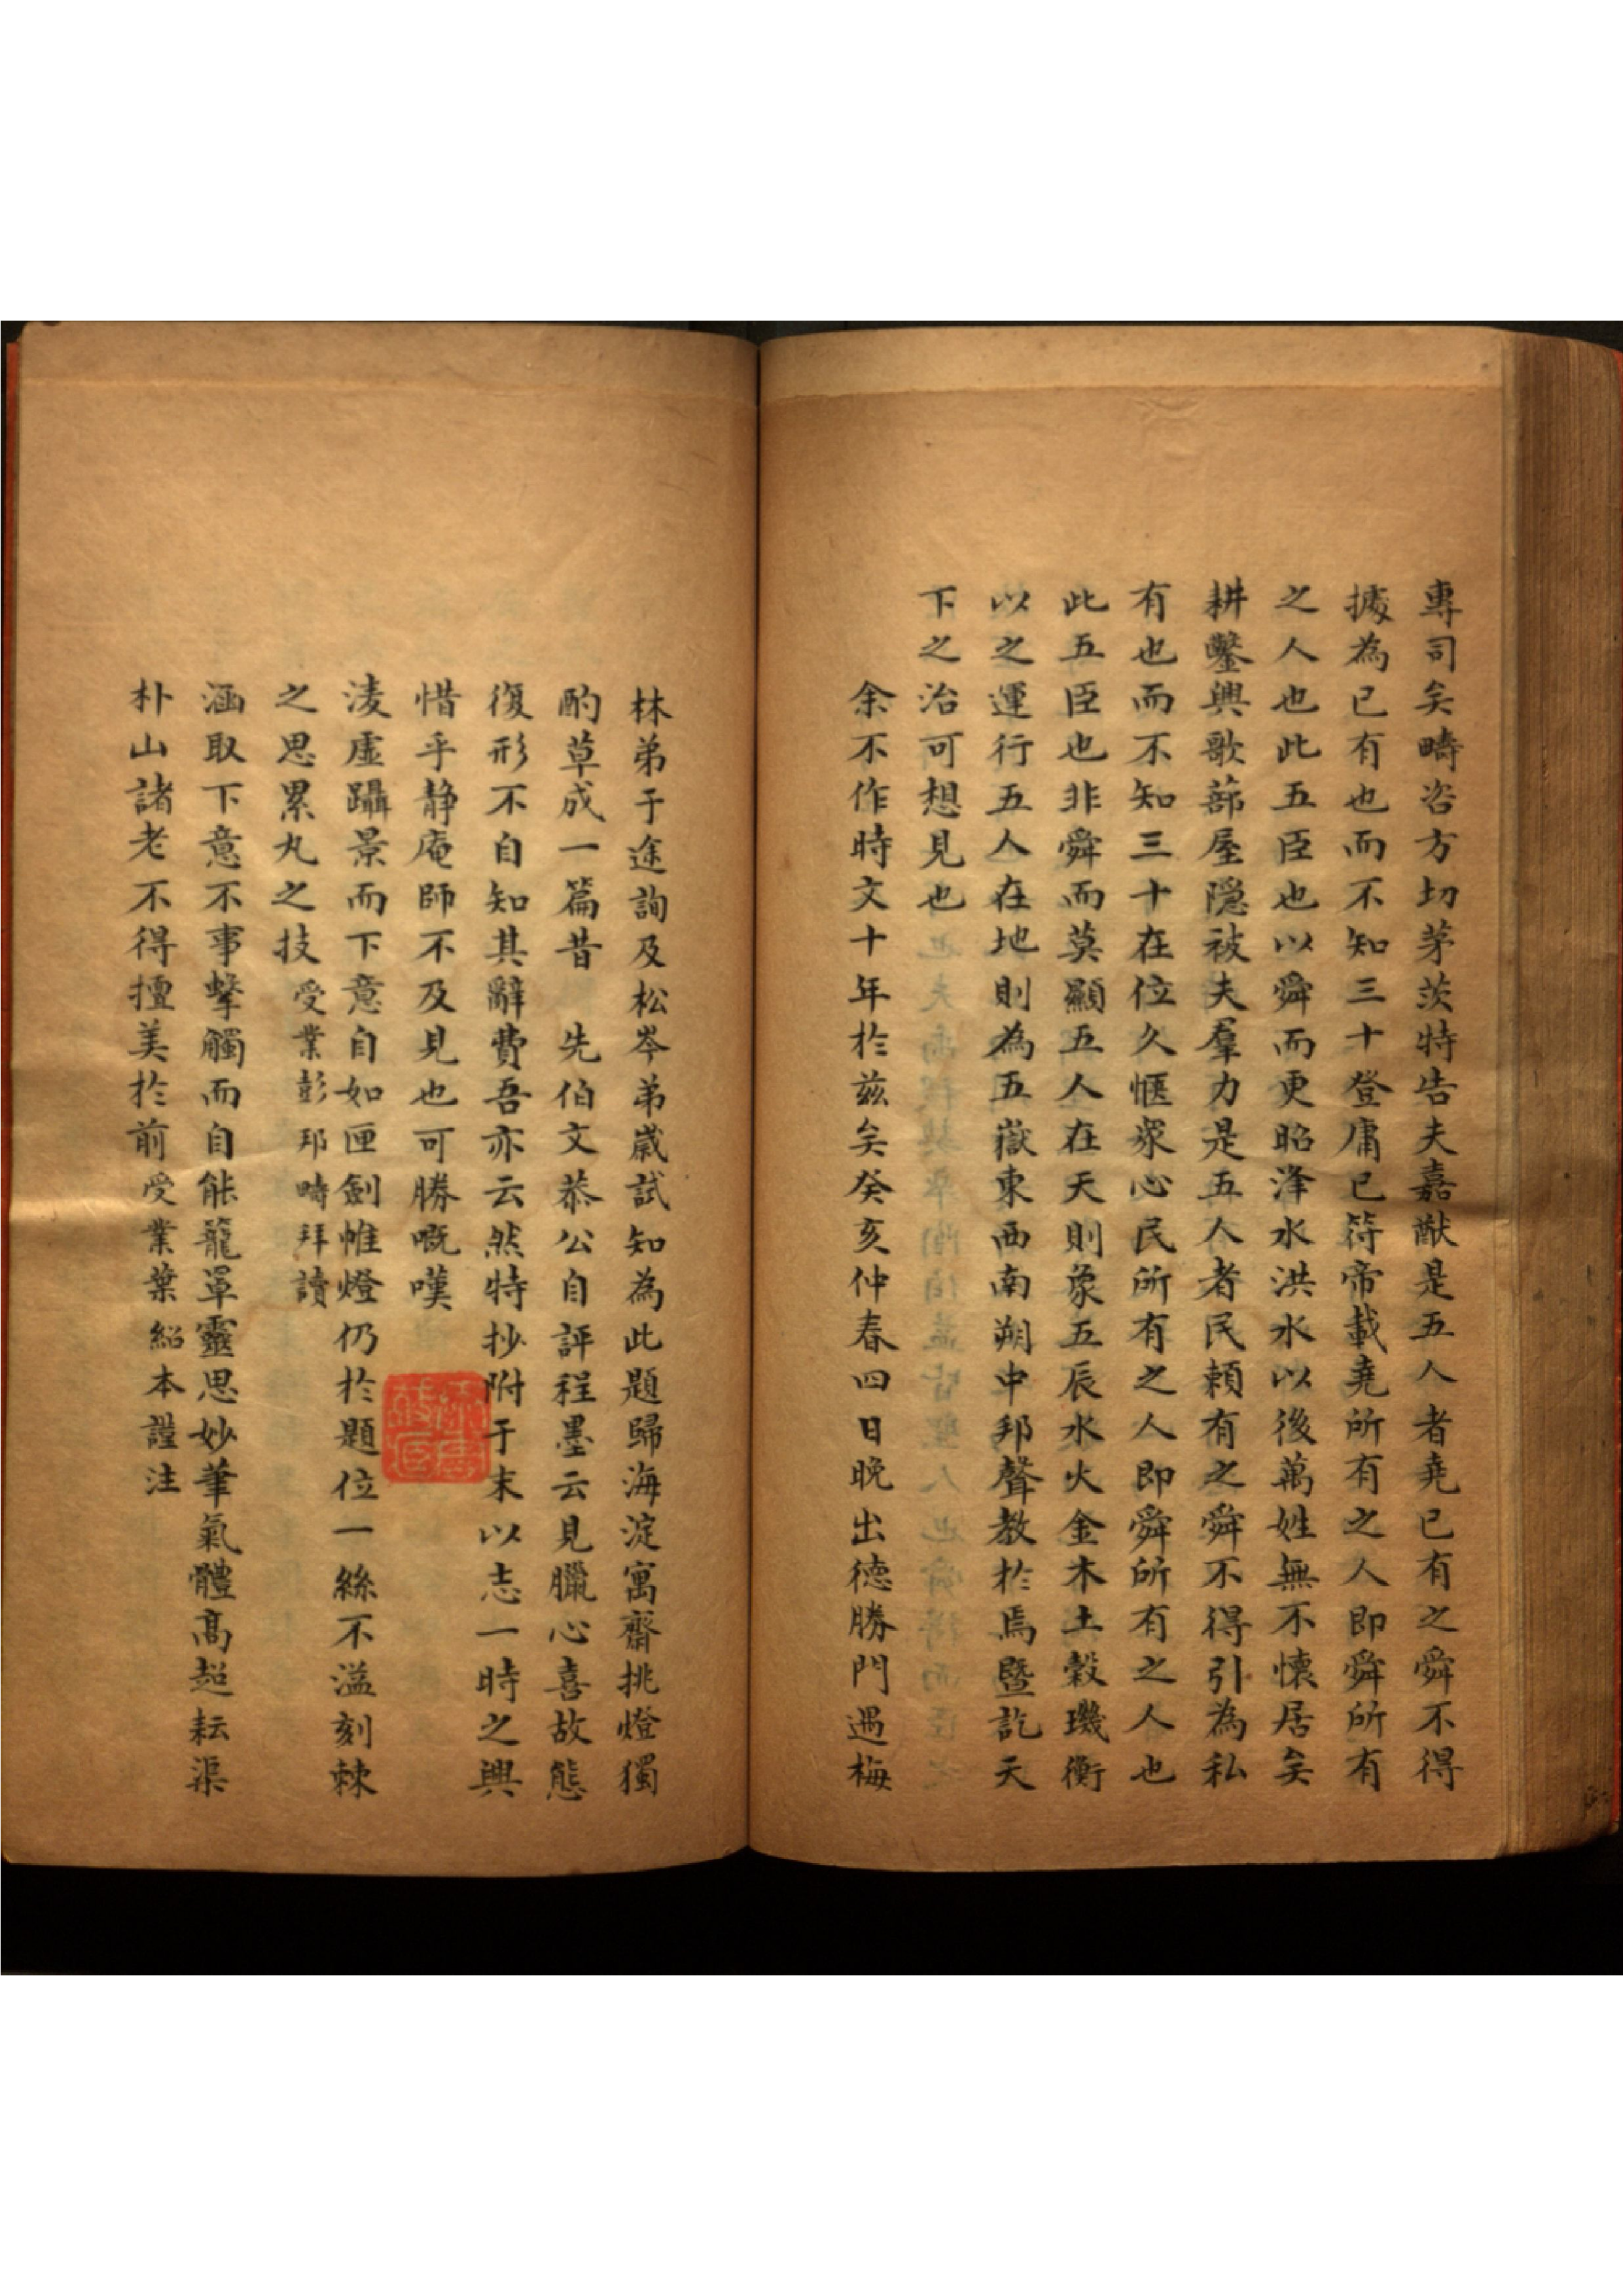 專司矣疇咨方切茅茨特告夫嘉猷是五人者堯已有之舜不得
據為已有也而不知三十登庸已符帝載堯所有之人即舜所有
之人也此五臣也以舜而更昭洚水洪水以後萬姓無不懷居矣
耕鑿興歌蔀屋隱被夫羣力是五人者民賴有之舜不得引為私
有也而不知三十在位久愜衆心民所有之人即舜所有之人也
此五臣也非舜而莫顯五人在天則象五辰水火金木土穀璣衡
以之運行五人在地則為五嶽東西南朔中邦聲教於焉暨訖天
下之治可想見也
余不作時文十年於茲矣癸亥仲春四日晚出德勝門遇梅
林弟于途詢及松岑弟歲試知為此題歸海淀寓齋挑燈獨
酌草成一篇昔 先伯文恭公自評程墨云見臘心喜故態
復形不自知其辭費吾亦云然特抄附于末以志一時之興
惜乎靜庵師不及見也可勝嘅嘆
淩虛躡景而下意自如匣劍帷燈仍於題位一絲不溢刻棘
之思累丸之技 受業彭邦疇拜讀
涵取下意不事擊觸而自能籠罩靈思妙筆氣體高超耘渠
朴山諸老不得擅美於前 受業葉紹本謹注